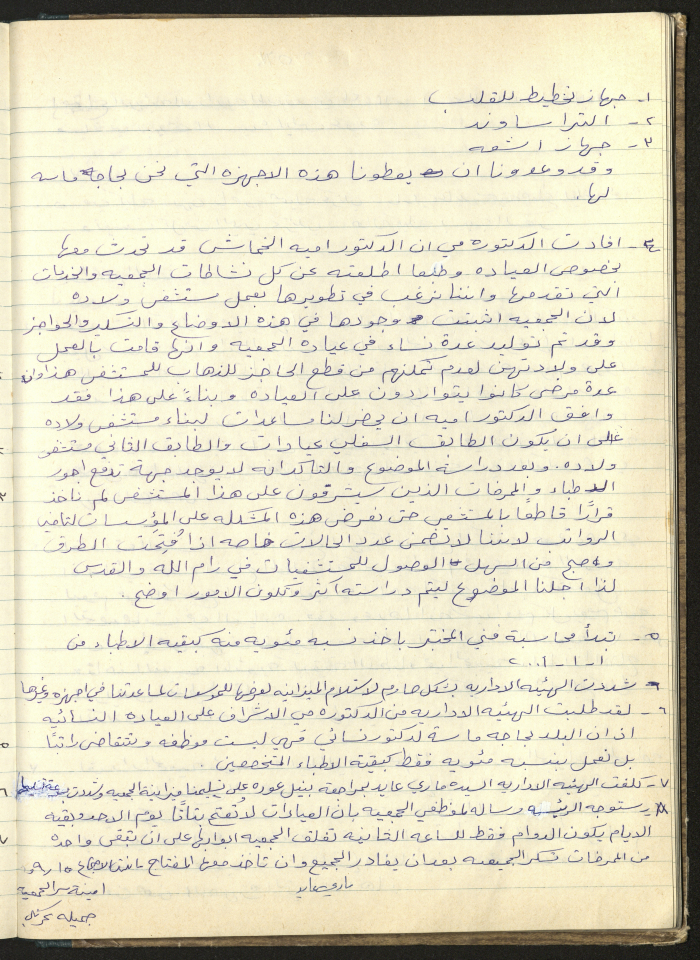 ١- جهاز تخطيط للقلب
٢- التراساوند
٣- جهاز اشعه
وقد وعدونا ان يعطونا هذه الاجهزه التي نحن بحاجة ماسه
لها.
٤- افادت الدكتوره مي ان الدكتور اميه الخماش قد تحدث معها
بخصوص العياده وطبعا اطلعته عن كل نشاطات الجمعيه والخدمات
التي تقدمها واننا نرغب في تطويرها بعمل مستشفى ولاده
لان الجمعيه اثبتت وجودها في هذه الاوضاع والتسكير والحواجز
وقد تم توليد عدة نساء في عيادة الجمعيه وانها قامت بالعمل
على ولادتهن لعدم تمكنهم من قطع الحاجز للذهاب للمستشفى هذا وان
عدة مرضى كانوا يتواردون على العياده وبناءً على هذا فقد
وافق الدكتور اميه ان يحضر لنا مساعدات لبناء مستشفى ولاده
على ان يكون الطابق السفلي عيادات والطابق الثاني مستشفى
ولاده. وبعد دراسة الموضوع والتأكد انه لا يوجد جهة تدفع اجور
الاطباء والممرضات الذين سيشرفون على هذا المستشفى لم نأخذ
قرارًا قاطعًا بالمستشفى حتى نعرض هذه المشكله على المؤسسات لتأمين
الرواتب لاننا لا نضمن عدد الحالات خاصه اذا فُتحت الطرق
واصبح من السهل الوصول للمستشفيات في رام الله والقدس
لذا اجلنا الموضوع ليتم دراسته اكثر وتكون الامور اوضح.
٥- تبدأ محاسبة فني المختبر باخذ نسبه مئويه منه كبقيه الاطباء من
١-١-٢٠٠١
شددت الهيئه الاداريه بشكل صارم لاستلام الميزانيه لعرضها للمؤسسات لمساعدتنا في اجهزه وغيرها
٦- لقد طلبت الهيئه الاداريه من الدكتوره مي الاشراف على العياده النسائيه
اذ ان البلد بحاجه ماسة لدكتور نسائي فهي ليست موظفه وتتقاضى راتبًا
بل تعمل بنسبه مئويه فقط كبقية الاطباء المتخصصين.
٧- كلفت الهيئه الاداريه السيده ماري عابد بمراجعة نبيل عوده على تسليمنا ميزانية الجمعيه
٨ ستوجه الرئيسه رساله لموظفي الجمعيه بان العيادات لا تُفتح بتاتًا يوم الاحد وبقية
الايام يكون الدوام فقط للساعه الثانيه تغلق الجمعيه ابوابها على ان تبقى واحده
من الممرضات تسكر الجمعيه بعد ان يغادر الجميع وان تأخذ معها المفتاح
امينة سر الجمعيه
ماري عابد
جميله